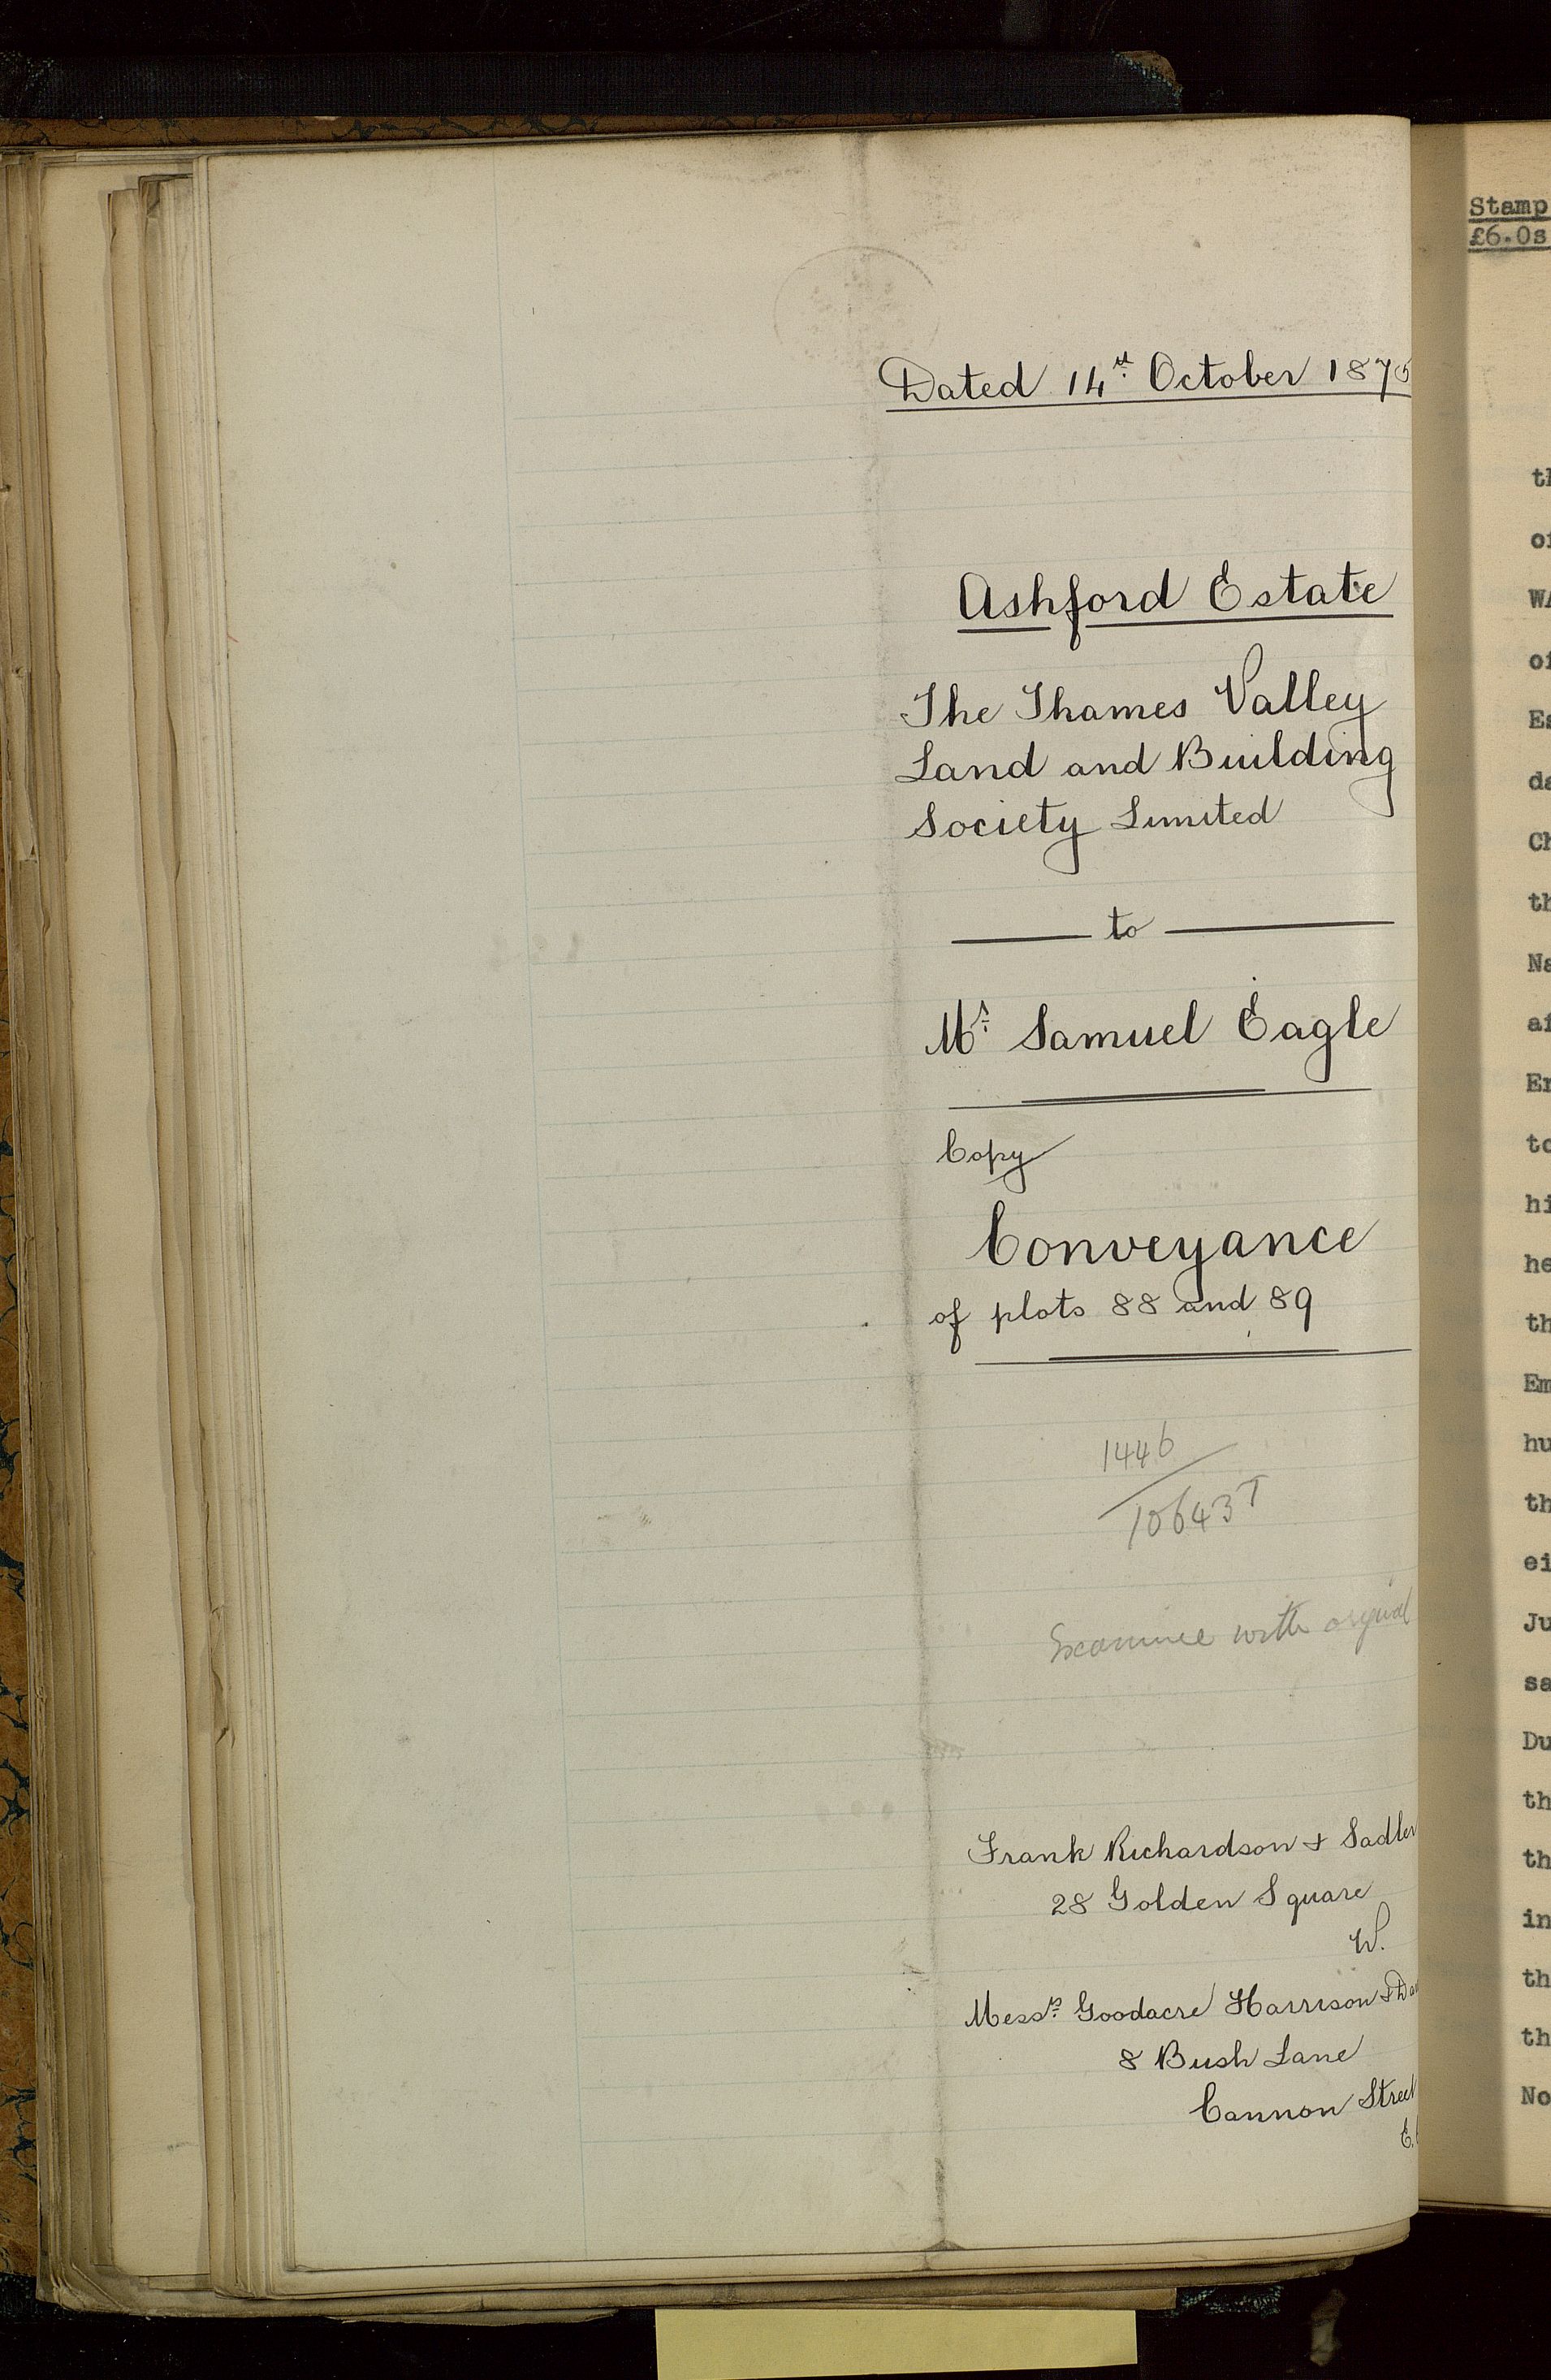 Dated 14st October 1875
Ashford Estate
The Thames Valley
Land and Building
Society Limited
to
Mr. Samuel Eagle
Copy
Conveyance
of plots 88 and 89
1446
10643T
Examine with original
Frank Richardson & Sadler
28 Golden Square
W.
Messrs. Goodacre Harrison &
8 Bush Lane
Cannon Street
E.
Stamp
£6.0s
th
of
WA
of
Es
da
Ch
th
Na
af
En
to
hi
he
th
Em
hu
th
ei
Ju
sa
Du
th
th
in
th
th
No